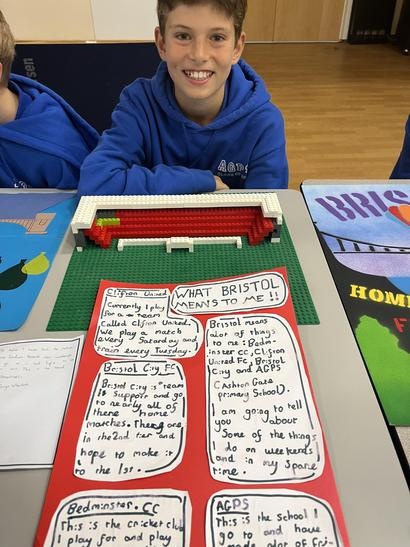 AGPS
WHAT BRISTOL
MEANS TO ME !!
Clifton United
Currently I play
for a team
Called Clifton United.
We play a match
every Saturday and
train every Tuesday.
Bristol City FC
Bristol City is team
I support and go
to nearly all of
there home
matches. There are
in the 2nd tier and
hope to make it
to the 1st.
Bristol means
alot of things
to me: Bedm-
inster CC, Clifton
United FC, Bristol
City and AGPS
(Ashton Gate
Primary School).
I am going to tell
you about
Some of the things
I do on weekends
and in my spare
time.
Bedminster CC
This is the cricket club
I play for and play
AGPS
This is the school I
go to and have
BRIS
HOM
F